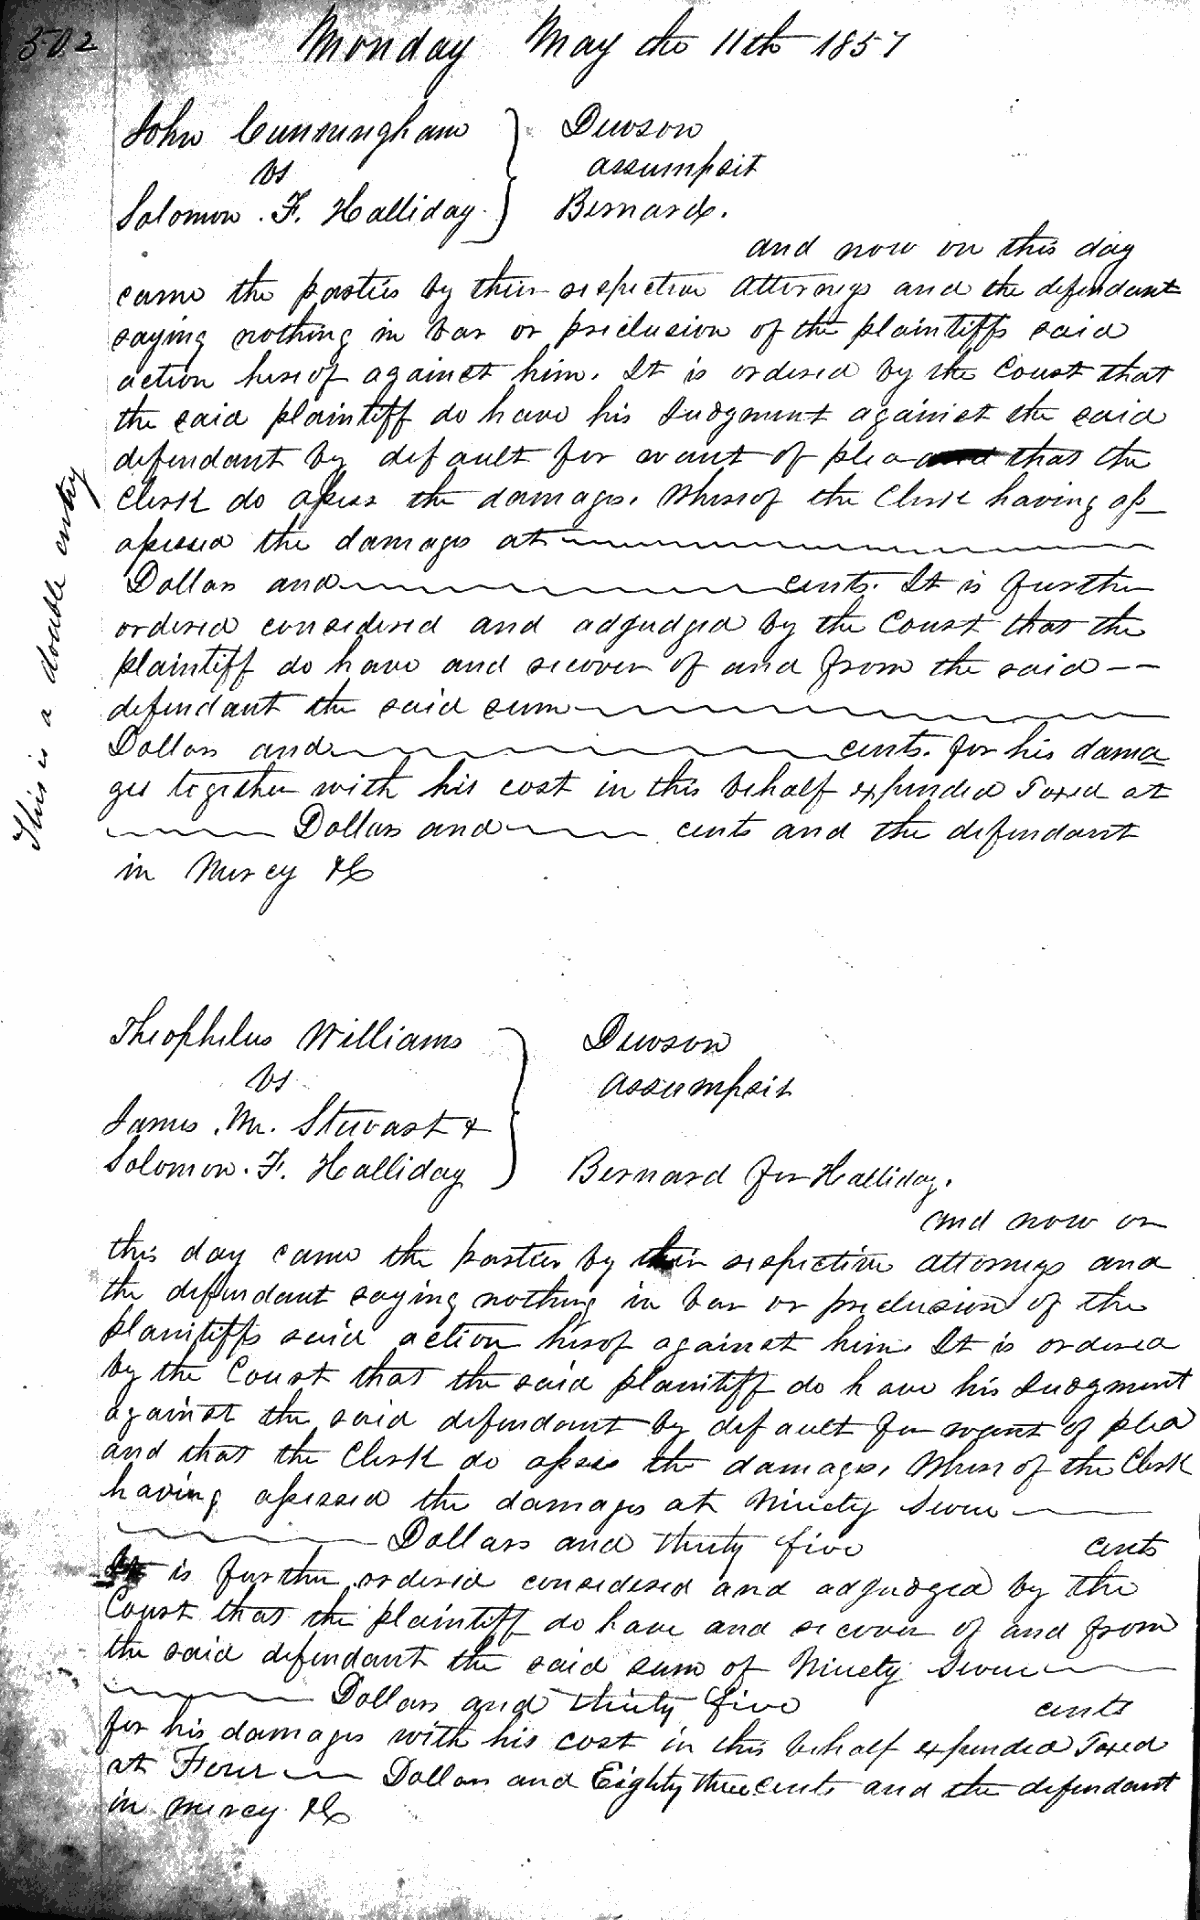 302
Monday May the 11th 1857
John Cunningham
vs
Solomon. F. Halliday.
Dewson
assumpsit
Bernard.
and now on this day
came the parties by their respective attorneys and the defendant
saying nothing in bar or preclusion of the plaintiffs said
action hereof against him. It is ordered by the Court that
the said plaintiff do have his Judgment against the said
defendant by default for want of plea and that the
Clerk do assess the damages. Whereof the Clerk having as_
assessed the damages at
Dollars and cents. It is further
ordered considered and adjudged by the Court that the
plaintiff do have and recover of and from the said --
defendant the said sum
Dollars and cents. for his dama
ges together with his cost in this behalf expended Taxed at
Dollars and cents and the defendant
in Mercy &C
This is a double entry
Theophelus Williams
vs
James. M. Stewart &
Solomon. F. Halliday
Dewson
assumpsit
Bernard for Halliday.
and now on
this day came the parties by their respective attorneys and
the defendant saying nothing in bar or preclusion of the
plaintiffs said action hereof against him. It is ordered
by the Court that the said plaintiff do have his Judgment
against the said defendant by default for want of plea
and that the Clerk do assess the damages. Whereof the Clerk
having assessed the damages at Ninety Seven
Dollars and thirty five cents
It is further ordered considered and adjudged by the
Court that the plaintiff do have and recover of and from
the said defendant the said sum of Ninety Seven
Dollars and thirty five cents
for his damages with his cost in this behalf expended Taxed
at Four Dollars and Eighty three cents and the defendant
in mercy &C